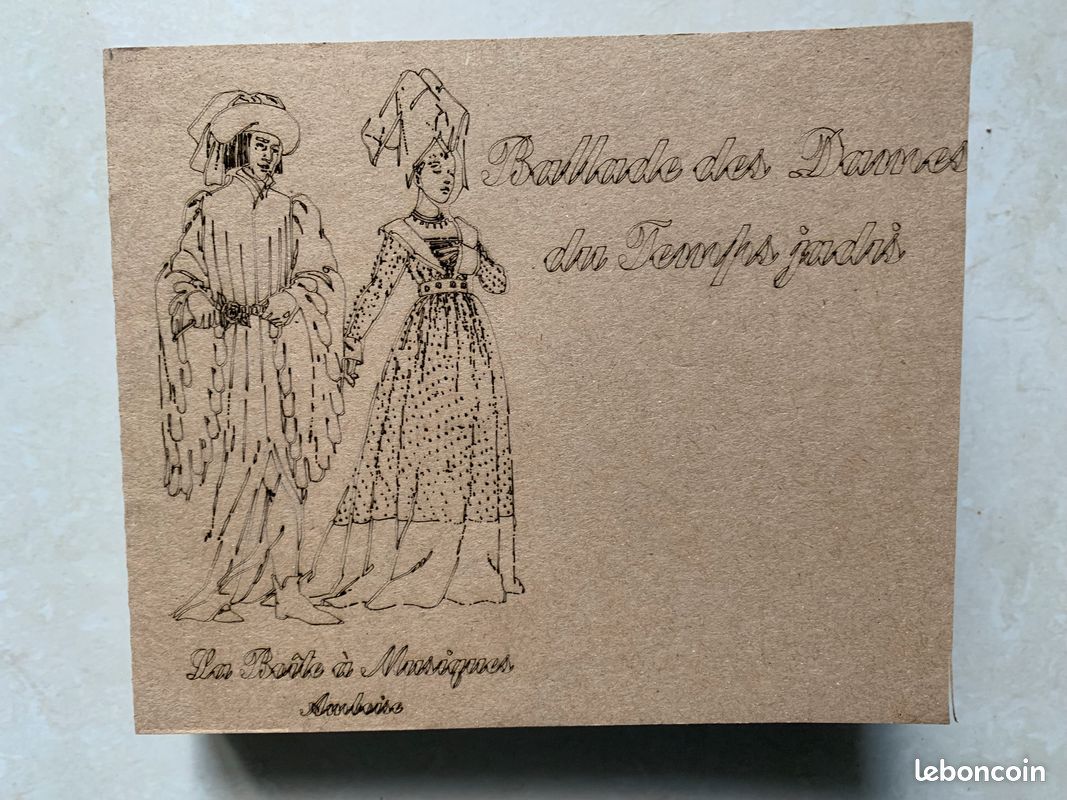 Ballade des Dames
du Temps jadis
La Boîte à Musiques
Amboise
leboncoin